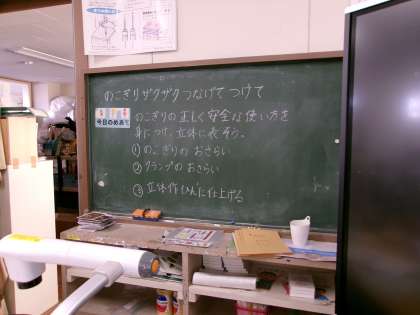 のこぎりザクザク つなげて つけて
今日のめあて
のこぎりの正しく安全な使い方を
身につけ、立体に表そう。
①のこぎりの おさらい
②クランプの おさらい
③立体作品に仕上げる